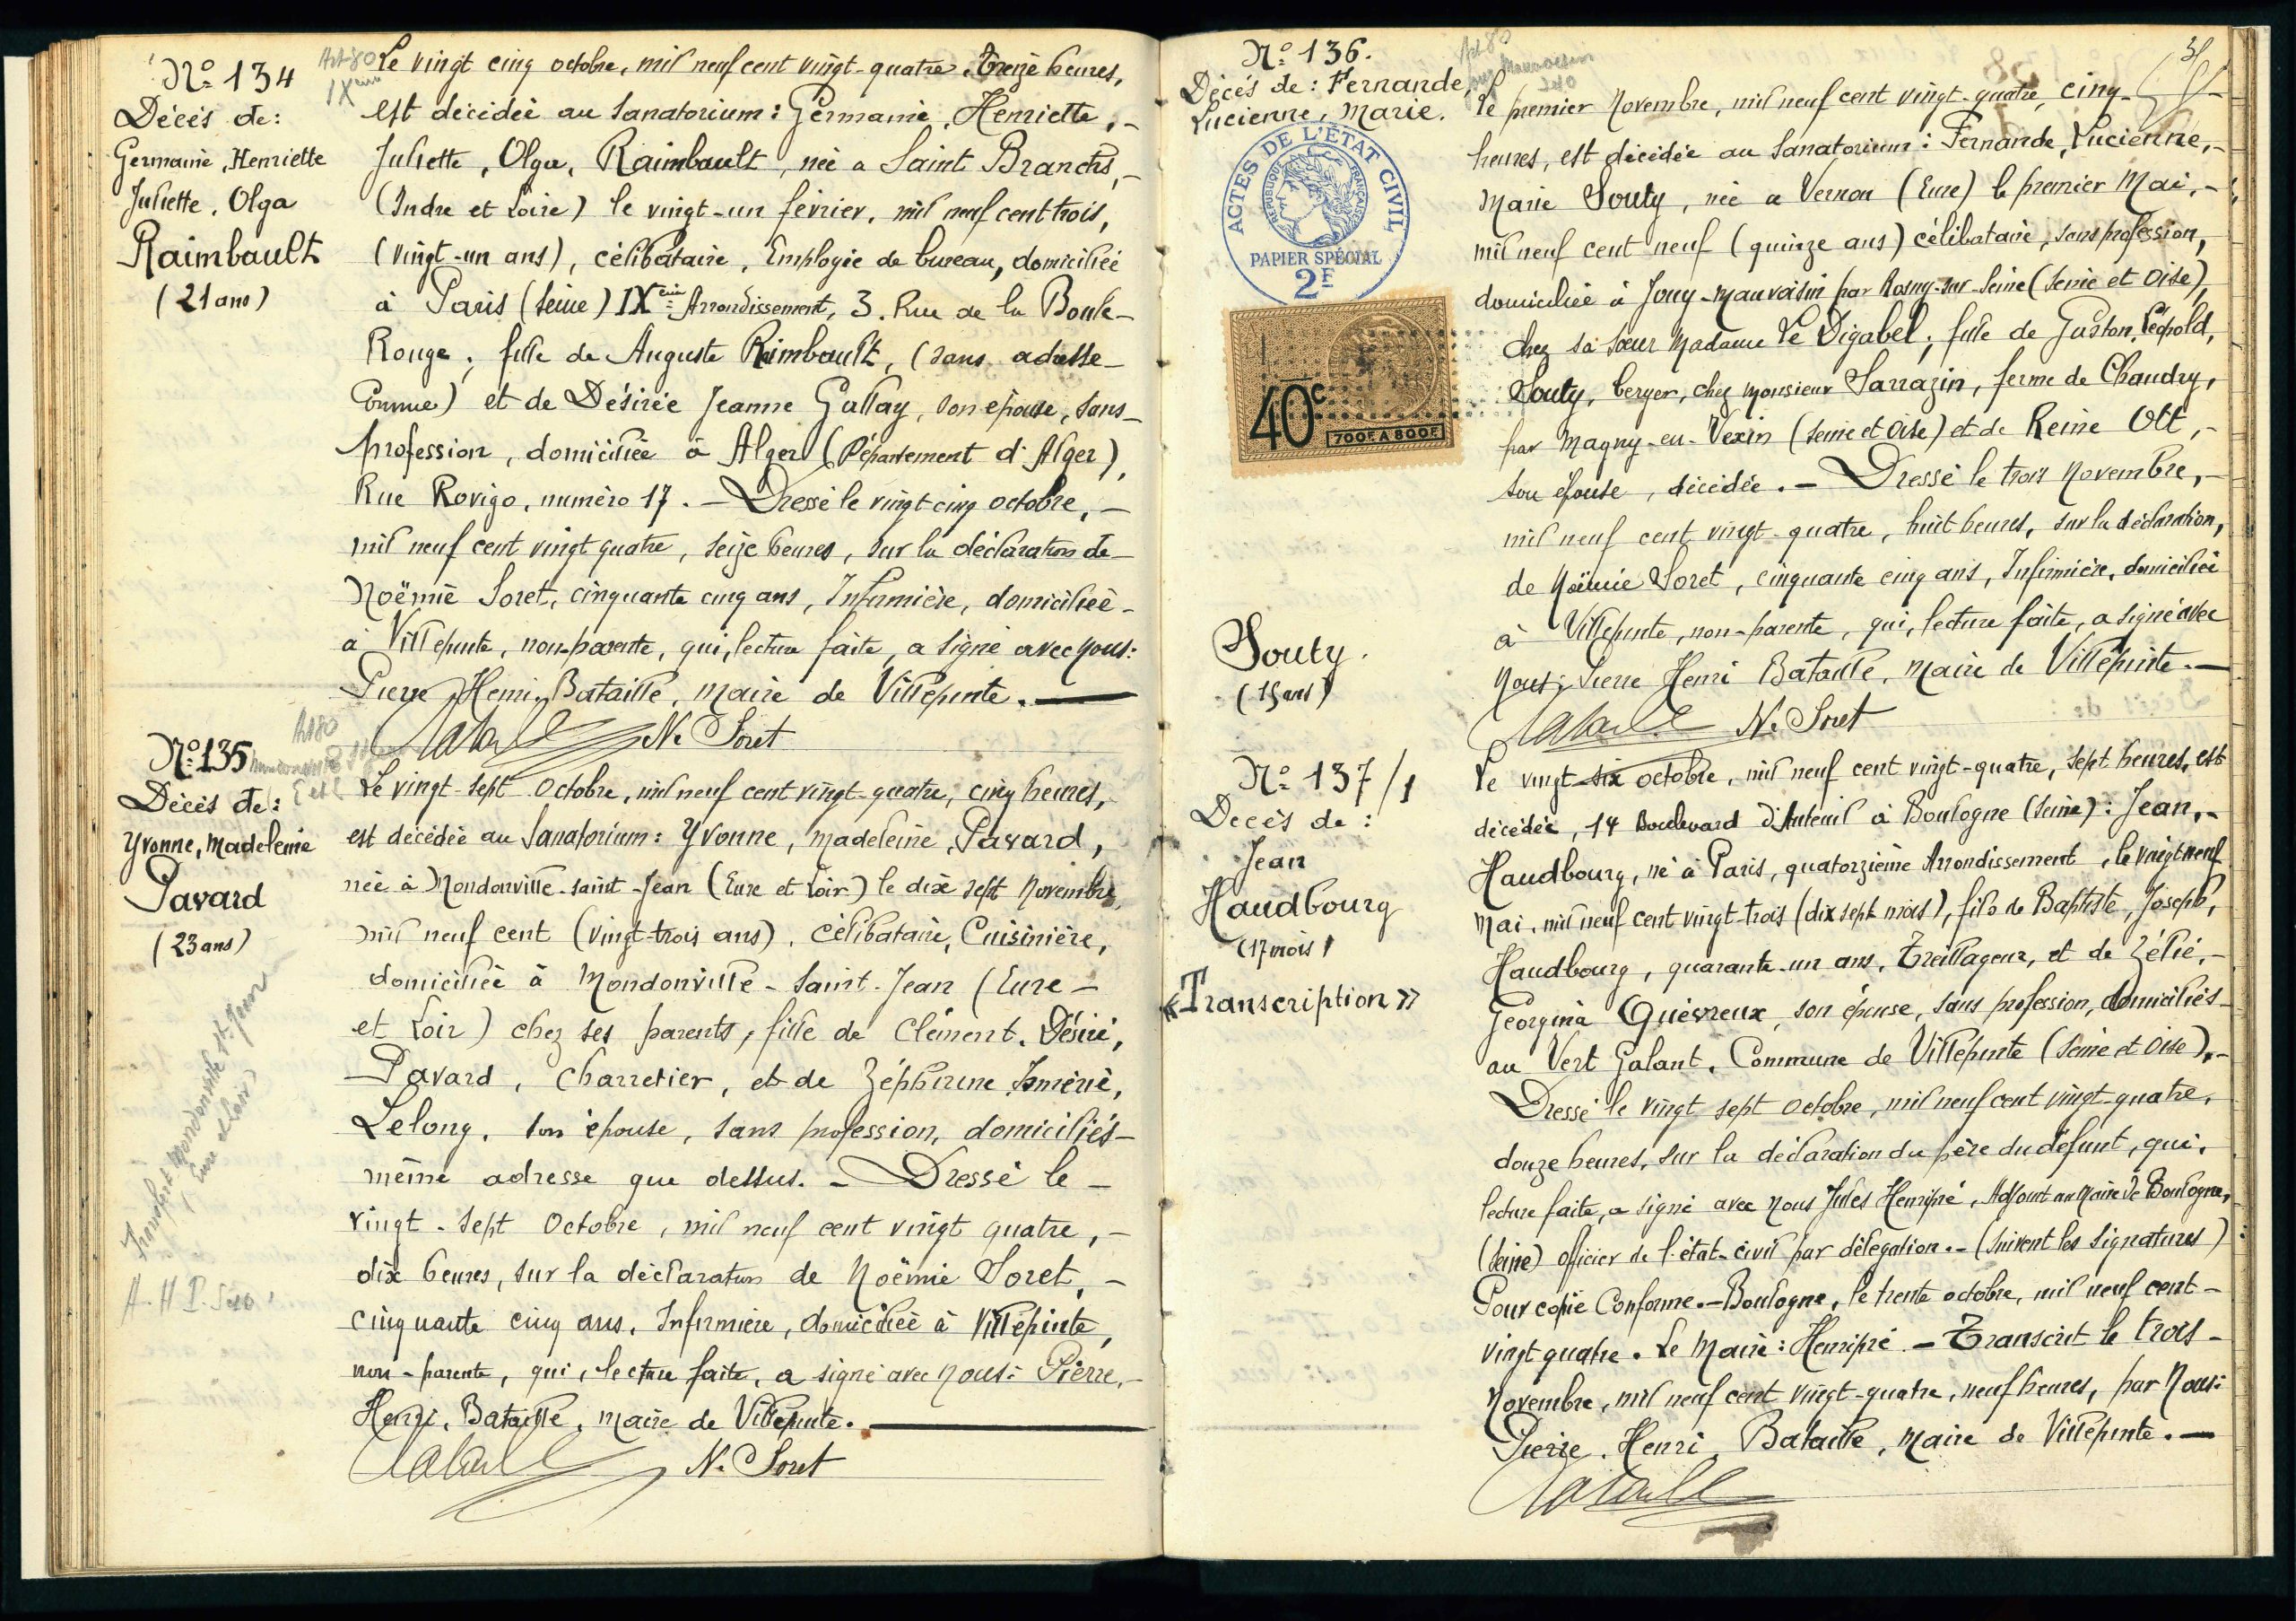 N° 134
Décès de:
Germaine, Henriette
Juliette, Olga
Raimbault
(21 ans)
Art 80
IXème
Le vingt cinq octobre, mil neuf cent vingt-quatre, treize heures,
est décédée au Sanatorium: Germaine, Henriette, -
Juliette, Olga, Raimbault, née a Saint Branchs, -
(Indre et Loire) le vingt-un février, mil neuf cent trois,
(vingt-un ans), célibataire, Employée de bureau, domiciliée
à Paris (Seine) IXème Arrondissement, 3. Rue de la Boule-
Rouge; fille de Auguste Raimbault, (sans adresse-
Connue) et de Désirée Jeanne Gallay, son épouse, sans-
profession, domiciliée à Alger (Département d'Alger),
Rue Rovigo, numéro 17. - Dressé le vingt-cinq octobre, -
mil neuf cent vingt quatre, seize heures, sur la déclaration de
Noëmie Soret, cinquante cinq ans, Infirmière, domiciliée-
à Villepinte, non-parente, qui, lecture faite, a signé avec nous:
Pierre, Henri, Bataille, maire de Villepinte. -
Bataille N. Soret
N° 135
Décès de:
Yvonne, Madeleine
Pavard
(23 ans)
Art 80
Le vingt-sept Octobre, mil neuf cent vingt-quatre, cinq heures,
est décédée au Sanatorium: Yvonne, Madeleine, Pavard,
née à Mondonville-saint-Jean (Eure et Loir) le dix sept Novembre,
mil neuf cent (vingt-trois ans), célibataire, Cuisinière,
domiciliée à Mondonville-Saint-Jean (Eure-
et Loir) chez ses parents, fille de Clément, Désiré,
Pavard, Charretier, et de Zéphirine Ismérie,
Lelong, son épouse, sans profession, domiciliés-
même adresse que dessus. - Dressé le -
vingt-sept Octobre, mil neuf cent vingt quatre, -
dix heures, sur la déclaration de Noëmie Soret, -
cinquante cinq ans, Infirmière, domiciliée à Villepinte,
non-parente, qui, lecture faite, a signé avec nous: Pierre, -
Henri, Bataille, maire de Villepinte. -
Bataille N. Soret
Transfert Mondonville St Jean
(Eure et Loir)
N° 136.
Décès de: Fernande,
Lucienne, Marie.
ACTES DE L'ÉTAT CIVIL
RÉPUBLIQUE FRANÇAISE
PAPIER SPÉCIAL
2F
40c
700F A 800F
Souty.
(15 ans)
Art 80
Le premier Novembre, mil neuf cent vingt-quatre, cinq-
heures, est décédée au Sanatorium: Fernande, Lucienne, -
Marie Souty, née a Vernon (Eure) le premier Mai, -
mil neuf cent neuf (quinze ans) célibataire, sans profession,
domiciliée à Jouy-Mauvoisin par Rosny-sur-Seine (Seine et Oise),
chez sa soeur Madame Le Digabel; fille de Gaston, Léopold,
Souty, berger, chez Monsieur Sarrazin, ferme de Chaudry,
par Magny-en-Vexin (Seine et Oise) et de Reine Ott, -
son épouse, décédée. - Dressé le trois Novembre, -
mil neuf cent vingt-quatre, huit heures, sur la déclaration,
de Noëmie Soret, cinquante cinq ans, Infirmière, domiciliée
à Villepinte, non-parente, qui, lecture faite, a signé avec
Nous: Pierre Henri Bataille, maire de Villepinte. -
Bataille N. Soret
N° 137/1
Décès de:
Jean
Haudbourg
(17 mois)
«Transcription»
Le vingt-six octobre, mil neuf cent vingt-quatre, sept heures, est
décédée, 14 Boulevard d'Auteuil à Boulogne (Seine): Jean, -
Haudbourg, né à Paris, quatorzième Arrondissement, le vingt neuf
Mai, mil neuf cent vingt-trois (dix sept mois), fils de Baptiste, Joseph,
Haudbourg, quarante-un ans, Treillageur, et de Zélie, -
Georgina Quévreux, son épouse, sans profession, domiciliés-
au Vert Galant, Commune de Villepinte (Seine et Oise), -
Dressé le vingt sept octobre, mil neuf cent vingt-quatre,
douze heures, sur la déclaration du père du défunt, qui,
lecture faite, a signé avec nous Jules Henripré, Adjoint au Maire de Boulogne,
(Seine) officier de l'état-civil par délégation. - (Suivent les signatures)
Pour copie Conforme. - Boulogne, le trente octobre, mil neuf cent-
vingt quatre. Le Maire: Henripré - Transcrit le trois-
Novembre, mil neuf cent vingt-quatre, neuf heures, par Nous:
Pierre, Henri, Bataille, maire de Villepinte. -
Bataille